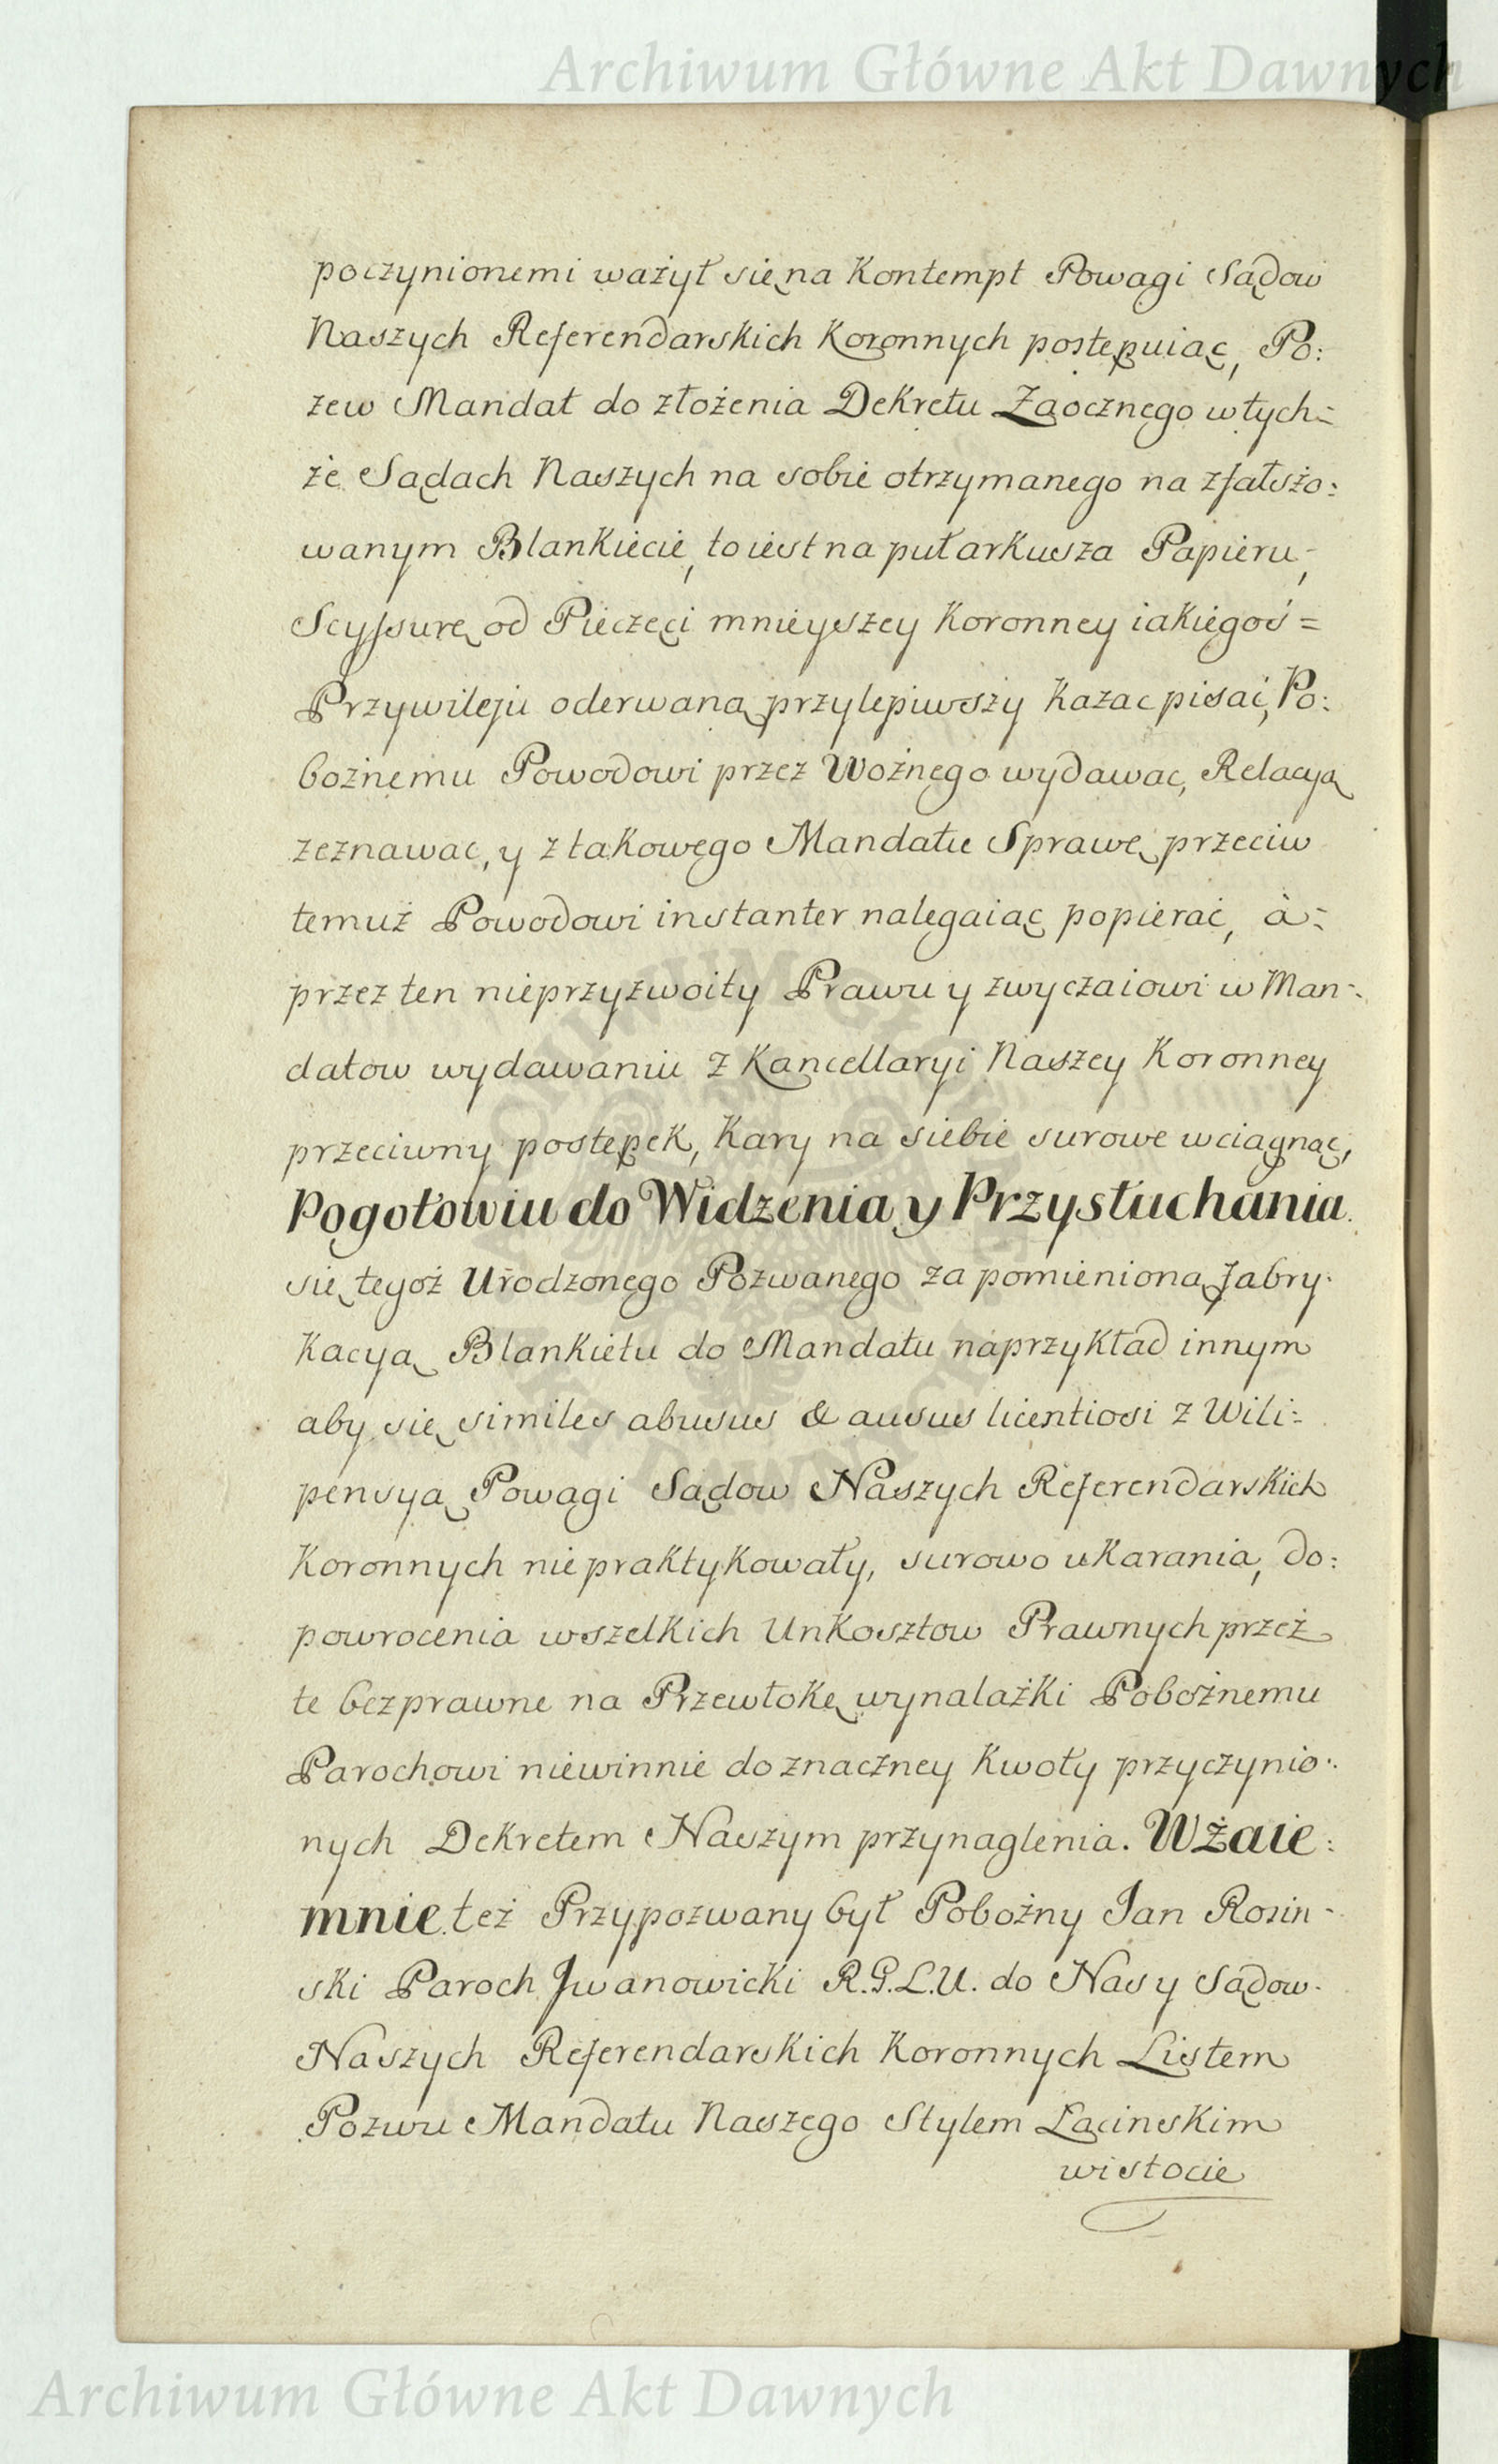 Archiwum Główne Akt Dawnych
poczynionemi ważył się na Kontempt Powagi Sądow
Naszych Referendarskich Koronnych postępuiąc, Po:
zew Mandat do złożenia Dekretu Zaocznego w tych=
że Sądach Naszych na sobie otrzymanego na zfałszo:
wanym Blankiecie, to iest na puł arkusza Papieru,
Scyssurę od Pieczęci mnieyszey Koronney iakiegoś =
Przywileju oderwaną przylepiwszy kazac pisać, Po:
bożnemu Powodowi przez Woźnego wydawac, Relacyą
zeznawac, y z takowego Mandatu Sprawę przeciw
temuż Powodowi instanter nalegaiąc popierać, à =
przez ten nieprzyzwoity Prawu y zwyczaiowi w Man=
datow wydawaniu z Kancellaryi Naszey Koronney
przeciwny postępek, Kary na siebie surowe wciągnąć,
Pogotowiu do Widzenia y Przysłuchania
się tegoż Urodzonego Pozwanego za pomienioną fabry=
kacyą Blankietu do Mandatu naprzykład innym
aby się similes abusus & ausus licentiosi z Wili=
pensyą Powagi Sądow Naszych Referendarskich
Koronnych nie praktykowały, surowo ukarania, do:
powrocenia wszelkich Unkosztow Prawnych przez
te bezprawne na Przewłokę wynalazki Pobożnemu
Parochowi niewinnie do znaczney Kwoty przyczynio=
nych Dekretem Naszym przynaglenia. Wżaie:
mnie też Przypozwany był Pobożny Jan Rosin=
ski Paroch Jwanowicki R.G.L.U. do Nas y Sądow
Naszych Referendarskich Koronnych Listem
Pozwu Mandatu Naszego Stylem Łacinskim
w istocie
Archiwum Główne Akt Dawnych